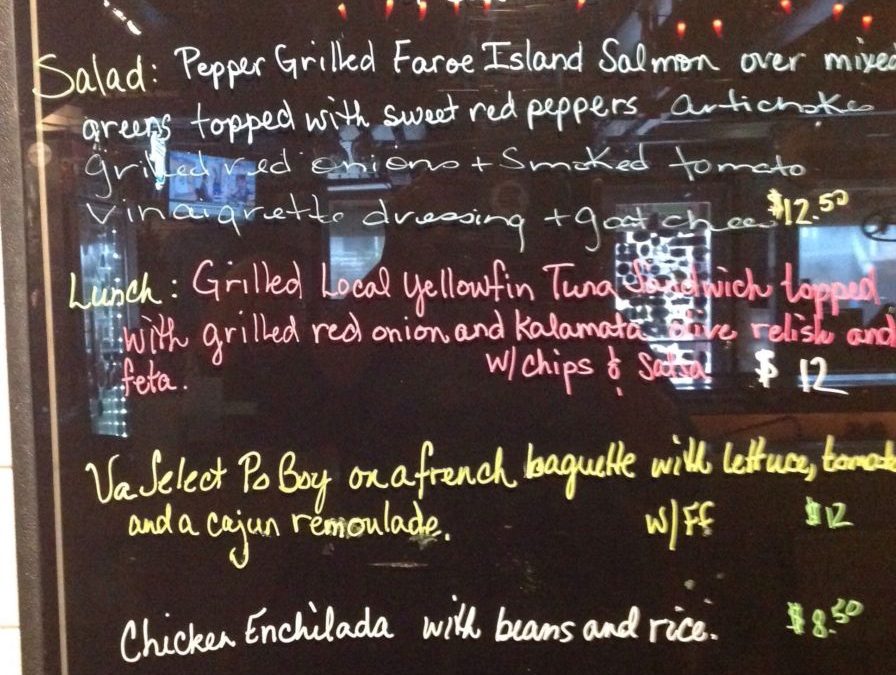 Salad: Pepper Grilled Faroe Island Salmon over mixed
greens topped with sweet red peppers artichoke
grilled red onions + smoked tomato
vinaigrette dressing + goat chee $12.50
Lunch: Grilled Local Yellowfin Tuna Sandwich topped
with grilled red onion and Kalamata olive relish and
feta. w/chips & Salsa $12
Va Select Po Boy on a french baguette with lettuce, tomato
and a cajun remoulade. w/FF $12
Chicken Enchilada with beans and rice. $8.50